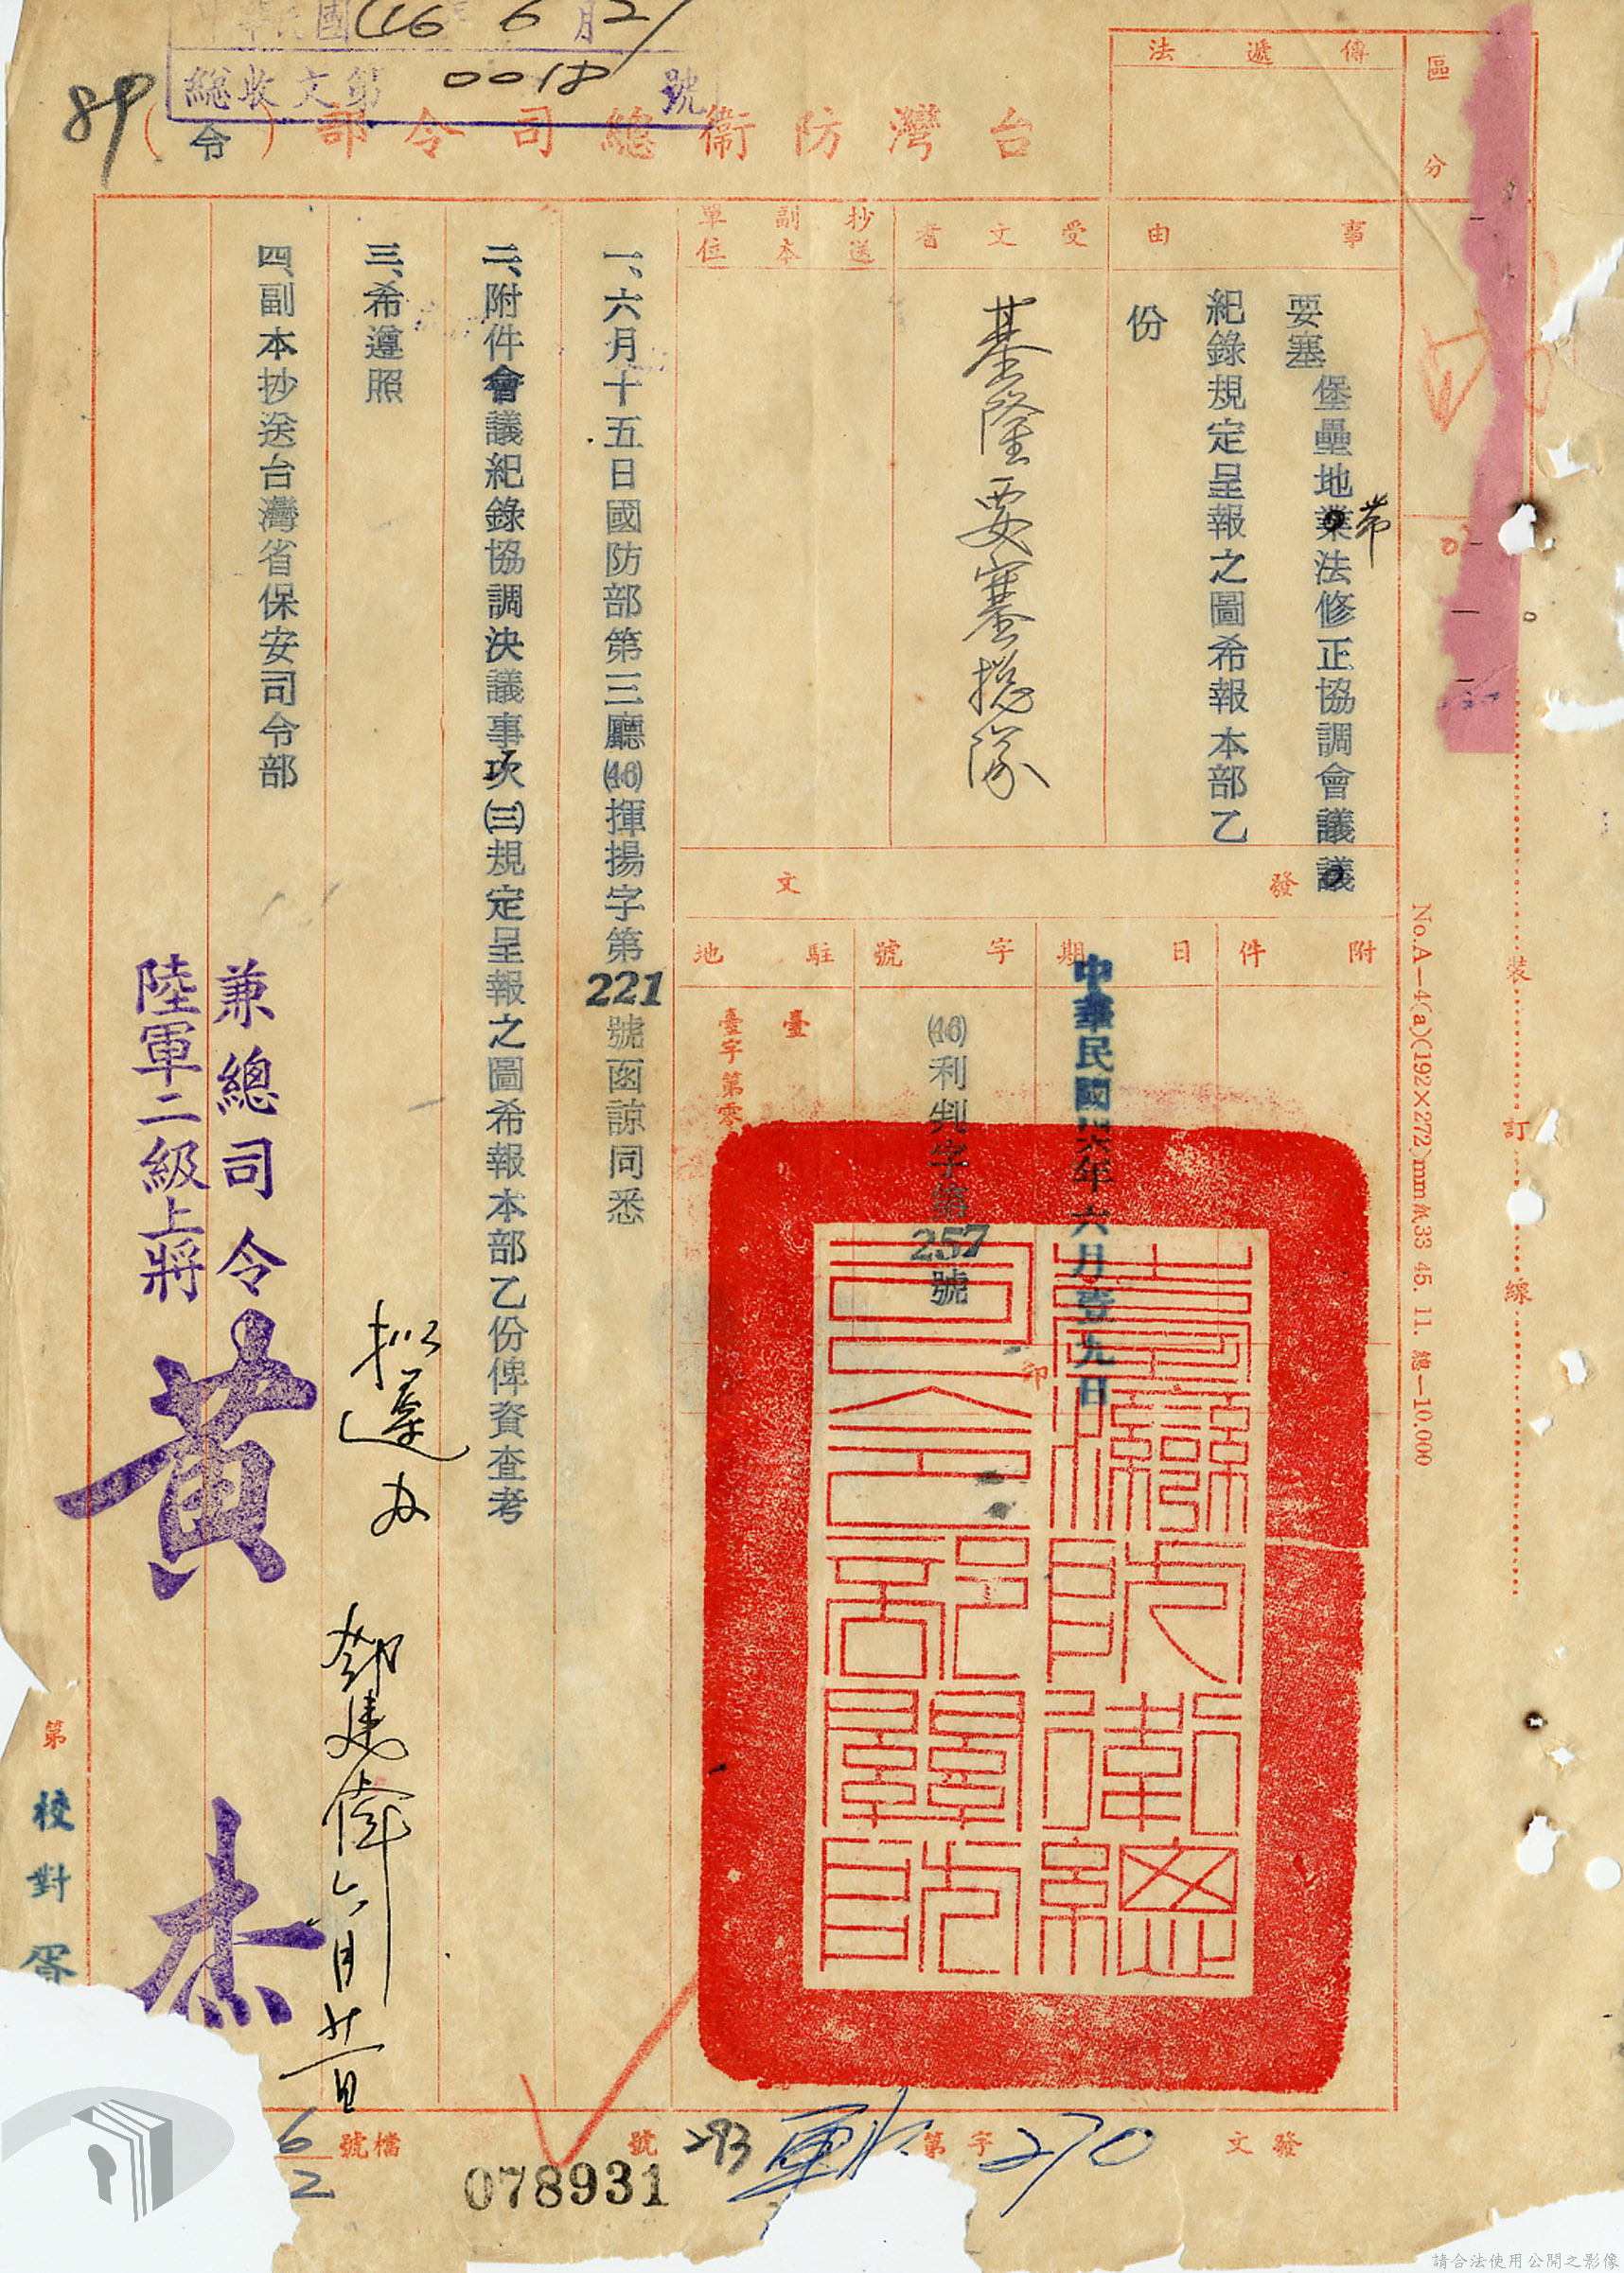 中華民國46 6月21
總收文第0018號
89
台灣防衛總司令部（令）
區分
傳遞法
事由
要塞堡壘地帶法修正協調會議
紀錄規定呈報之圖希報本部乙
份
受文者
基隆要塞總隊
抄送副本單位
發文
附件
日期
中華民國四六年六月壹九日
字號
(46)利判字第257號
駐地
臺
臺字第零
印
臺灣防衛總司令部關防
一、六月十五日國防部第三廳(46)揮揚字第221號函諒同悉
二、附件會議紀錄協調決議事項(三)規定呈報之圖希報本部乙份俾資查考
三、希遵照
四、副本抄送台灣省保安司令部
兼總司令
陸軍二級上將
黃杰
擬遵办
第
校對
發文
字第270
293
號
078931
檔號
6
2
裝訂線
No.A—4(a)(192×272)mm紙33 45. 11. 總—10.000
請合法使用公開之影像